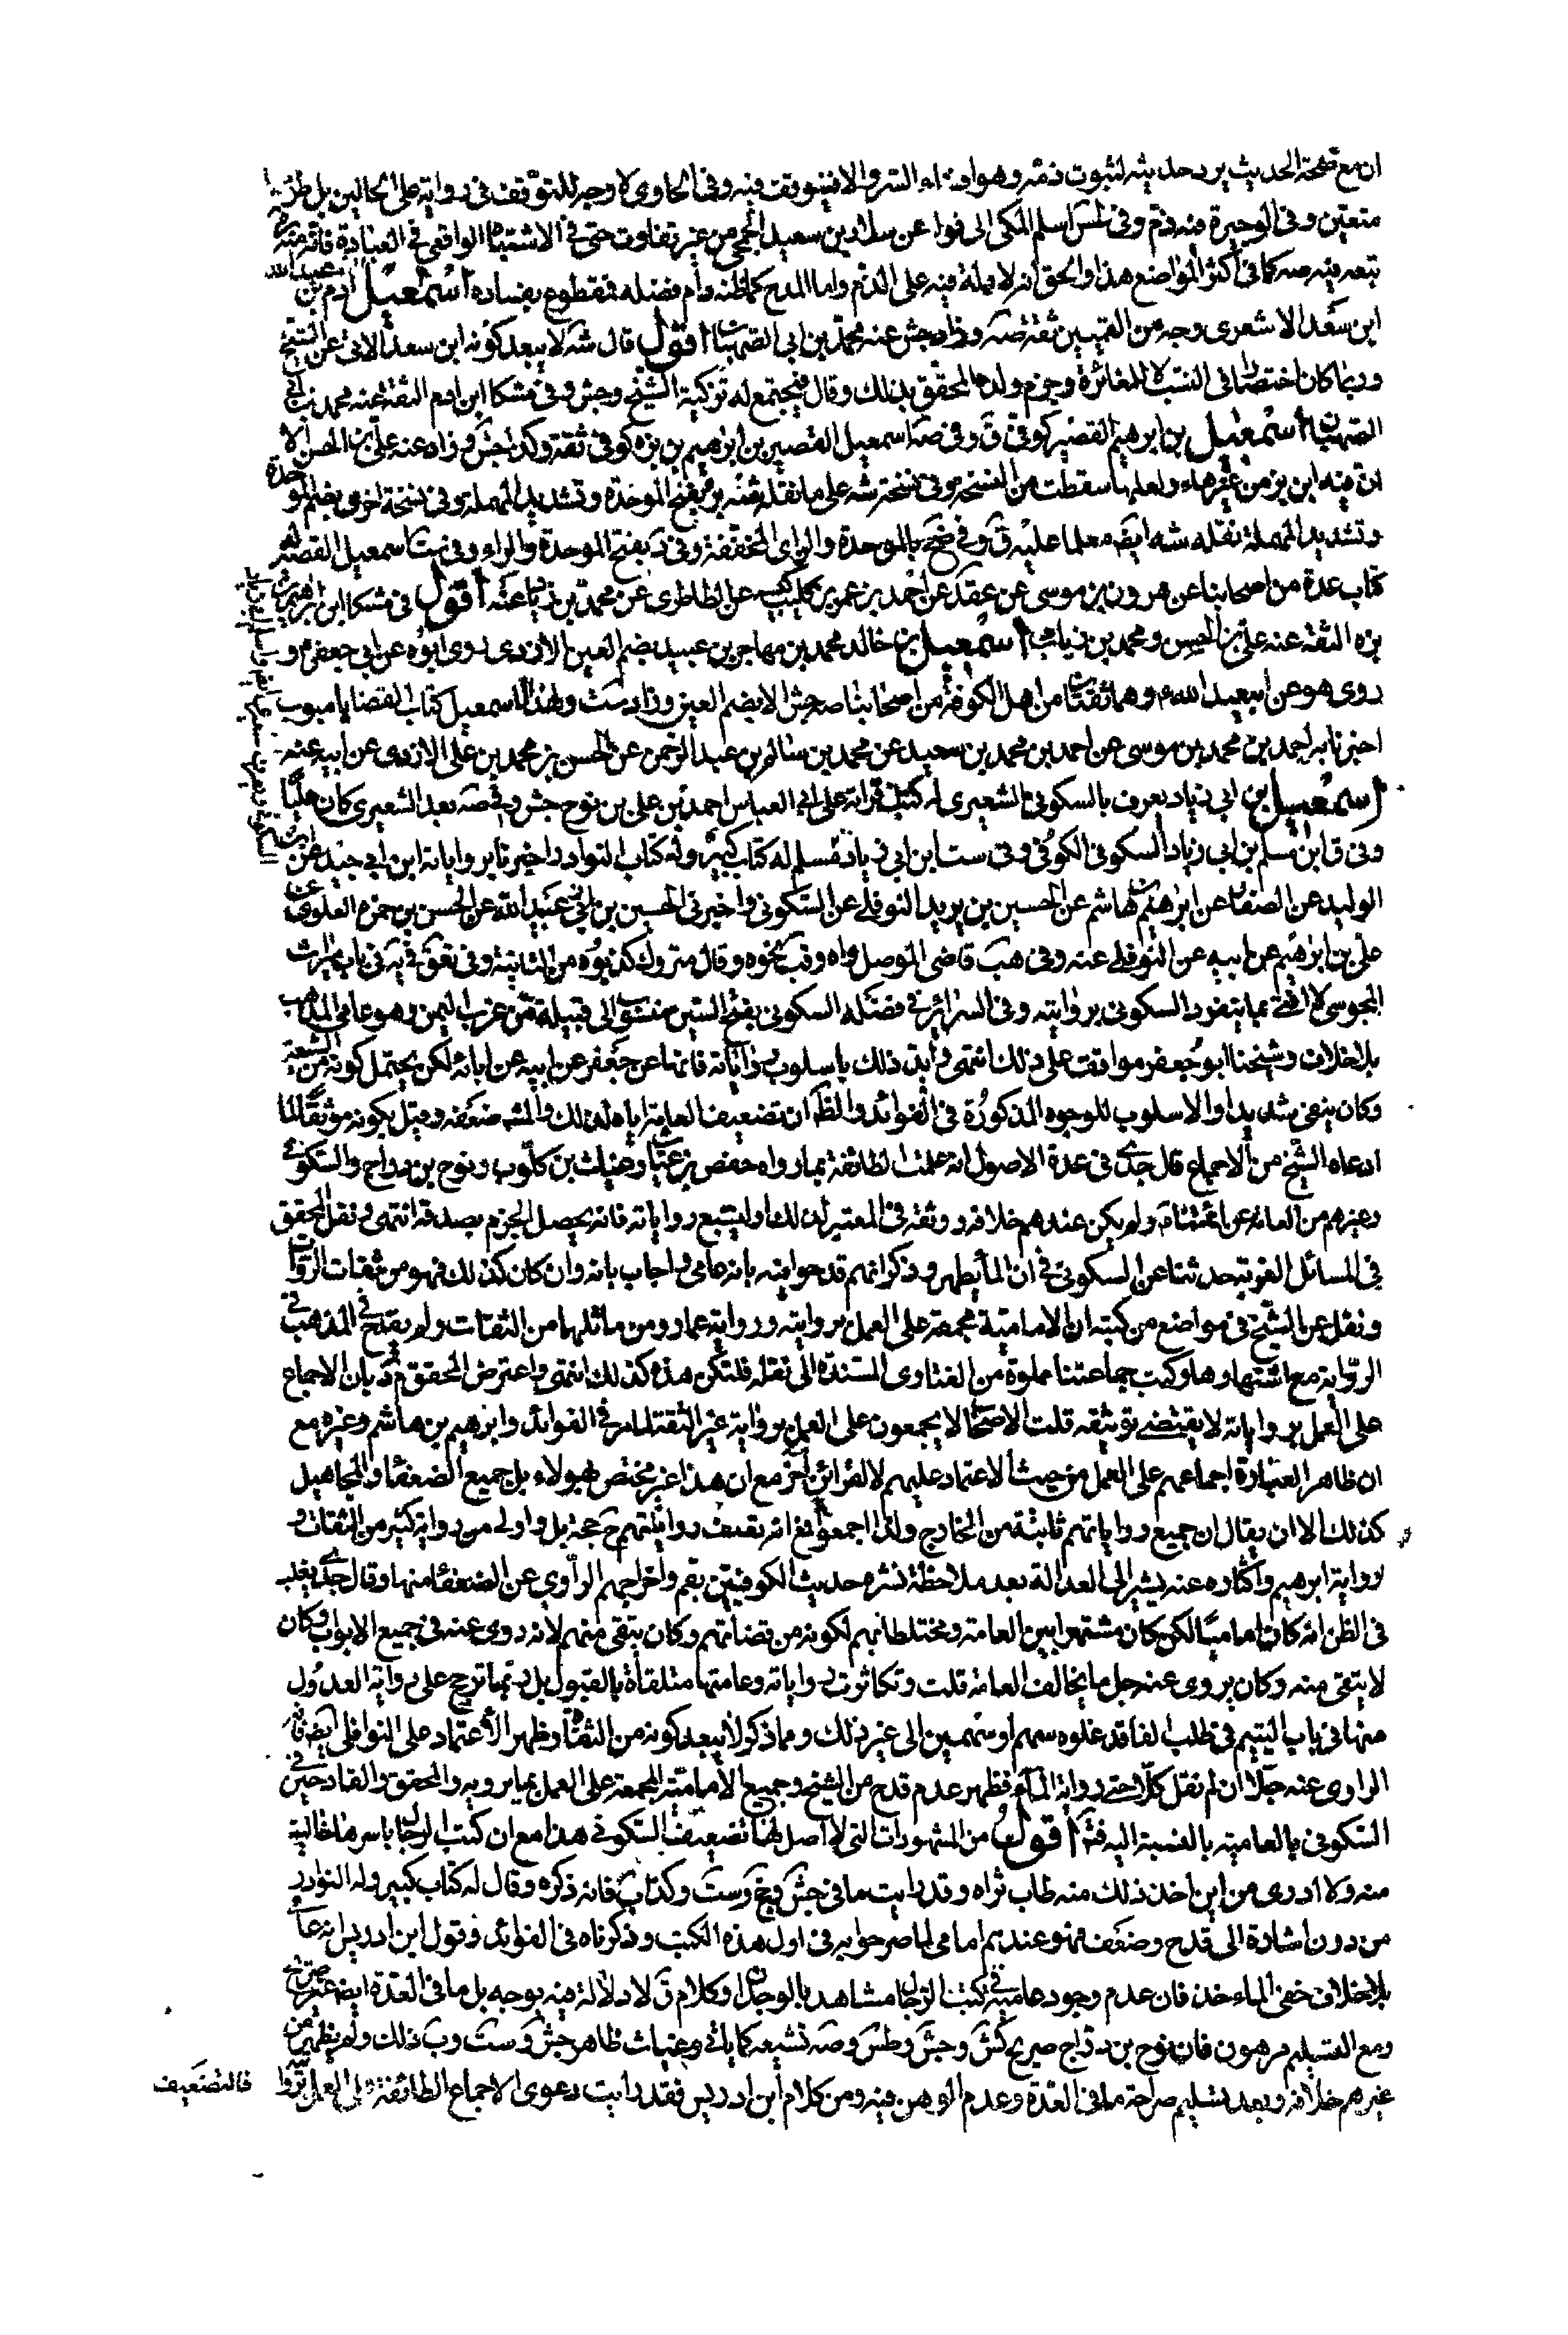 ان مع صحة الحديث يرد حديثه لثبوت ذمه وهو اوفى والا فيتوقف فيه وفي الحاوي لا وجه للتوقف في روايته على الحالين بل طرحها
متعين وفي الوجيزة فيه ذم وفي اسلم المكي الى فوا عن سلام بن سعيد الجمحي من غير تفاوت حتى في الاشتباه الواقعي في العبادة فانه منه
تبعه فيه صه كما في اكثر المواضع هذا والحق انه لا دلالة فيه على الذم واما المدح كما ظنه دام فضله فمقطوع بفساده اسمعيل بن ادم بن عبد الله
ابن سعد الاشعري وجه من القميين ثقة صه وزاد جش عنه محمد بن ابي الصهبان اقول قال شه لا يبعد كونه ابن سعد الاتي عن الشيخ
وربما كان اختصارا في النسب لا المغائرة وجزم ولده المحقق بذلك وقال فيجتمع له تزكية الشيخ وجش وفي مشكا ابن ادم الثقة عنه محمد بن ابي
الصهبان اسمعيل بن ابرهيم القصير كوفي ق وفي صه اسمعيل القصير بن ابرهيم بن بزه كوفي ثقة وكذا جش وزاد عنه علي بن الحسن الا
ان فيه ابن بز من غير هاء ولعلها سقطت من النسخة وفي نسخة شه على ما نقله عنه بر بفتح الموحدة وتشديد المهملة وفي نسخة اخرى بضم الموحدة
وتشديد المهملة نقله شه ايضا معلما عليه ق وفي ضح بالموحدة والزاي المخففة وفي د بفتح الموحدة والراء وفي ست اسمعيل القصير له
كتاب عدة من اصحابنا عن هرون بن موسى عن عقد عن احمد بن عمر بن كليب عن الطاطري عن محمد بن زياد عنه اقول في مشكا ابن ابرهيم بن
بزه الثقة عنه علي بن الحسن ومحمد بن زياد اسمعيل بن ابي خالد محمد بن مهاجر بن عبيد بضم العين الازدي روى ابوه عن ابي جعفر ع و
روى هو عن ابيعبد الله ع وهما ثقتان من اهل الكوفة من اصحابنا صه جش الا بضم العين وزاد ست ولهذا اسمعيل كتاب القضايا مبوب
اخبرنا به احمد بن محمد بن موسى عن احمد بن محمد بن سعيد عن محمد بن سالم بن عبد الرحمن عن الحسن بن محمد بن علي الازدي عن ابيه عنه
اسمعيل بن ابي زياد يعرف بالسكوني الشعيري له كتاب قراته على ابي العباس احمد بن علي بن نوح جش وفي صه بعد الشعيري كان عاميا
وفي ق ابن مسلم بن ابي زياد السكوني الكوفي وفي ست ابن ابي زياد مسلم له كتاب كبير وله كتاب النوادر اخبرنا برواياته ابن ابي جيد عن ابن
الوليد عن الصفار عن ابرهيم بن هاشم عن الحسين بن يزيد النوفلي عن السكوني واخبرني الحسين بن عبيد الله عن الحسن بن حمزه العلوي عن
علي بن ابرهيم عن ابيه عن النوفلي عنه وفي هب قاضي الموصل واه وقب نحوه وقال متروك كذبوه من الثامنة وفي تعق في يه في باب ميراث
المجوسي لا افتي بما ينفرد السكوني بروايته وفي السرائر في فصل له السكوني بفتح السين منسوب الى قبيلة من عرب اليمن وهو عامي المذهب
بلا خلاف وشيخنا ابو جعفر موافق على ذلك انتهى ويؤيد ذلك اسلوب رواياته فانها عن جعفر عن ابيه عن ابائه لكن يحتمل كونه من الشيعة
وكان يتقي شديدا والاسلوب للوجوه المذكورة في الفوائد والظ ان تضعيف العامة اياه لذلك والمش ضعفه وقيل بكونه موثقا لما
ادعاه الشيخ من الاجماع قال جدي في عدة الاصول انه عملت الطائفة بما رواه حفص بن غياث وغياث بن كلوب ونوح بن دراج والسكوني
وغيرهم من العامة عن ائمتنا ع ولم يكن عندهم خلافه ووثقه في المعتبر لذلك اوليتتبع رواياته فانه يحصل الجزم بصدقه انتهى ونقل المحقق
في المسائل الغرية حديثا عن السكوني في ان الماء يطهر وذكر انهم قدحوا فيه بانه عامي واجاب بانه وان كان كذلك فهو من ثقات الرواة
ونقل عن الشيخ في مواضع من كتبه ان الامامية مجمعة على العمل بروايته ورواية عمار ومن ماثلهما من الثقات ولم يقدح المذهب في
الرواية مع اشتهارها وكتب جماعتنا مملوة من الفتاوى المستندة الى نقله فلتكن هذه كذلك انتهى واعترض المحقق بان الاجماع
على العمل برواياته لا يقتضي توثيقه قلت الاصحاب لا يجمعون على العمل برواية غير الثقة لما مر في الفوائد وابرهيم بن هاشم وغيره مع
ان ظاهر العبارة اجماعهم على العمل من حيث الاعتماد عليهم لا لقرائن اخر مع ان هذا غير مختص بهؤلاء بل جميع الضعفاء والمجاهيل
كذلك الا ان يقال ان جميع رواياتهم ثابتة من الخارج ولذا اجمعوا مع انه تصير رواياتهم ح حجة بل واولى من رواية كثير من الثقات و
رواية ابرهيم واكثاره عنه يشير الى العدالة بعد ملاحظة نشره حديث الكوفيين بقم واخراجهم الراوي عن الضعفاء منها وقال جدي يغلب
في الظن انه كان اماميا لكن كان مشتهرا بين العامة ومختلطا بهم لكونه من قضاتهم وكان يتقي منهم لانه روى عنه في جميع الابواب وكان
لا يتقي منه وكان يروي عنه جل ما يخالف العامة قلت وتكاثرت رواياته وعامتها متلقاة بالقبول بل ربما ترجح على رواية العدول
منها في باب التيمم في طلب الفاقد غلوة سهم او سهمين الى غير ذلك ومما ذكر لا يبعد كونه من الثقات وظهر الاعتماد على النوفلي ايضا فانه
الراوي عنه جلا ان لم نقل كلا حتى رواية الماء فظهر عدم قدح من الشيخ وجميع الامامية المجمعة على العمل بما يرويه والمحقق والقادحين في
السكوني بالعامية بالنسبة اليه فتأمل اقول من المشهورات التي لا اصل لها تضعيف السكوني هذا مع ان كتب الرجال باسرها خالية
منه ولا ادري من اين اخذ ذلك منه طاب ثراه وقد رايت ما في جش وجخ وست وكذا ب فانه ذكره وقال له كتاب كبير وله النوادر
من دون اشارة الى قدح وضعف فهو عندهم امامي لما صرحوا به في اول هذه الكتب وذكرناه في الفوائد وقول ابن ادريس انه عامي
بلا خلاف خفي الماخذ فان عدم وجود عاميته في كتب الرجال مشاهد بالوجدان وكلام ق لا دلالة فيه بوجه بل ما في العدة ايضا غير صريح
ومع التسليم مرهون فان نوح بن دراج صريح كش وجش وطس وصه تشيعه كما ياتي وغياث ظاهر جش وست وب ذلك ولم يظهر من
غيرهم خلافه وبعد تسليم صراحة ما في العدة وعدم الوهن فيه ومن كلام ابن ادريس فقد رايت دعوى الاجماع الطائفة على العمل
فالتضعيف